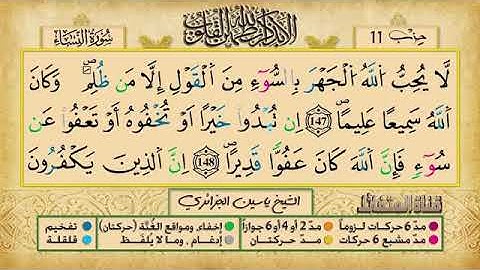 حزب 11
ألا بذكر الله تطمئن القلوب
سُورَةُ النِّسَاءِ
لَّا يُحِبُّ اُللَّهُ اُلْجَهْرَ بِالسُّوٓءِ مِنَ اَلْقَوْلِ إِلَّا مَن ظُلِمَۖ وَكَانَ
اَللَّهُ سَمِيعًا عَلِيمًا 147 إِن تُبْدُواْ خَيْرًا اَوْ تُخْفُوهُ أَوْ تَعْفُواْ عَن
سُوٓءٍ فَإِنَّ اَللَّهَ كَانَ عَفُوًّا قَدِيرًا 148 إِنَّ اَلذِينَ يَكْفُرُونَ
الشيخ ياسين الجزائري
مدّ 6 حركات لزوماً مدّ 2 أو 4 أو 6 جوازاً إخفاء، ومواقع الغُنَّة (حركتان) تفخيم
مدّ مشبع 6 حركات مدّ حركتان إدغام، وما لا يُلفَظ قلقلة